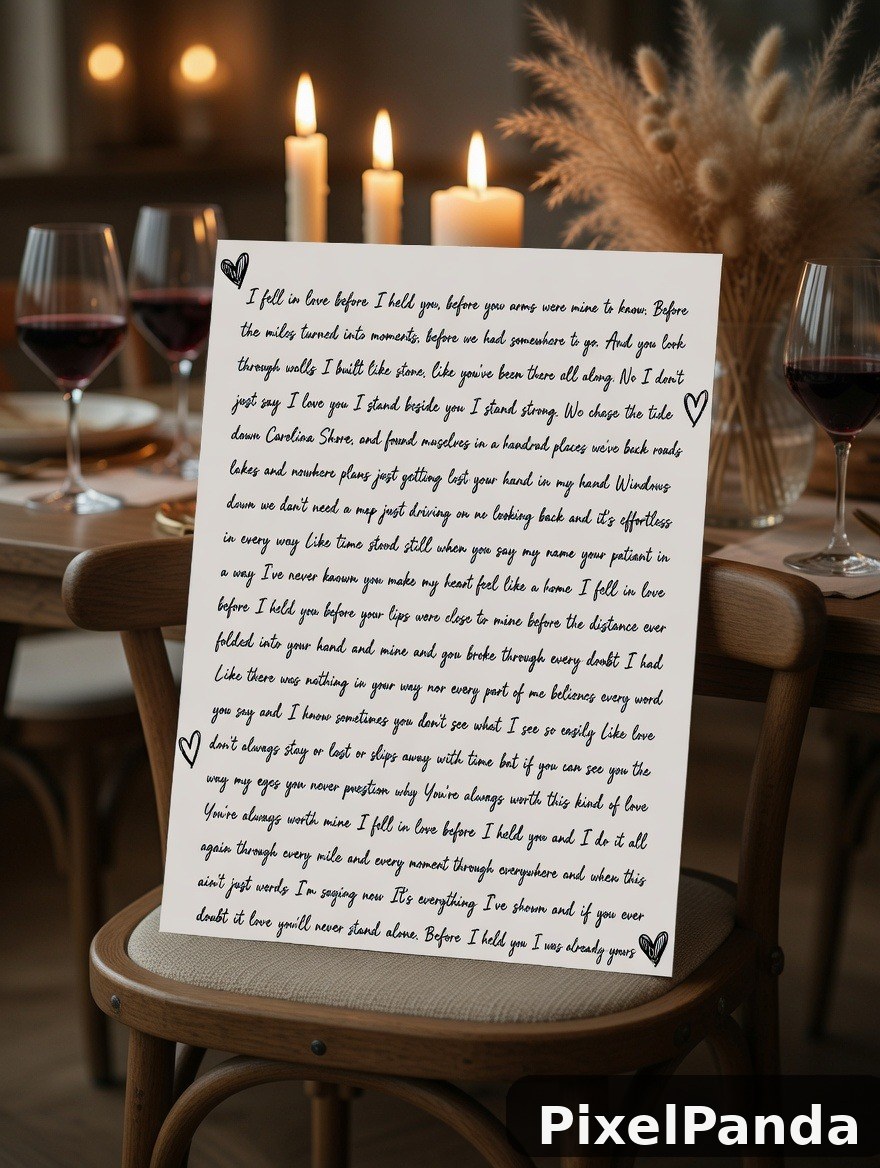 I fell in love before I held you, before your arms were mine to know. Before
the miles turned into moments, before we had somewhere to go. And you look
through walls I built like stone, like you've been there all along. No I don't
just say I love you I stand beside you I stand strong. We chase the tide
down Carolina Shore, and found ourselves in a hundred places we've back roads
lakes and nowhere plans just getting lost your hand in my hand Windows
down we don't need a map just driving on no looking back and it's effortless
in every way Like time stood still when you say my name your patient in
a way I've never known you make my heart feel like a home I fell in love
before I held you before your lips were close to mine before the distance ever
folded into your hand and mine and you broke through every doubt I had
Like there was nothing in your way nor every part of me believes every word
you say and I know sometimes you don't see what I see so easily Like love
don't always stay or last or slips away with time but if you can see you the
way my eyes you never question why You're always worth this kind of love
You're always worth mine I fell in love before I held you and I do it all
again through every mile and every moment through everywhere and when this
ain't just words I'm saying now It's everything I've shown and if you ever
doubt it love you'll never stand alone. Before I held you I was already yours
PixelPanda